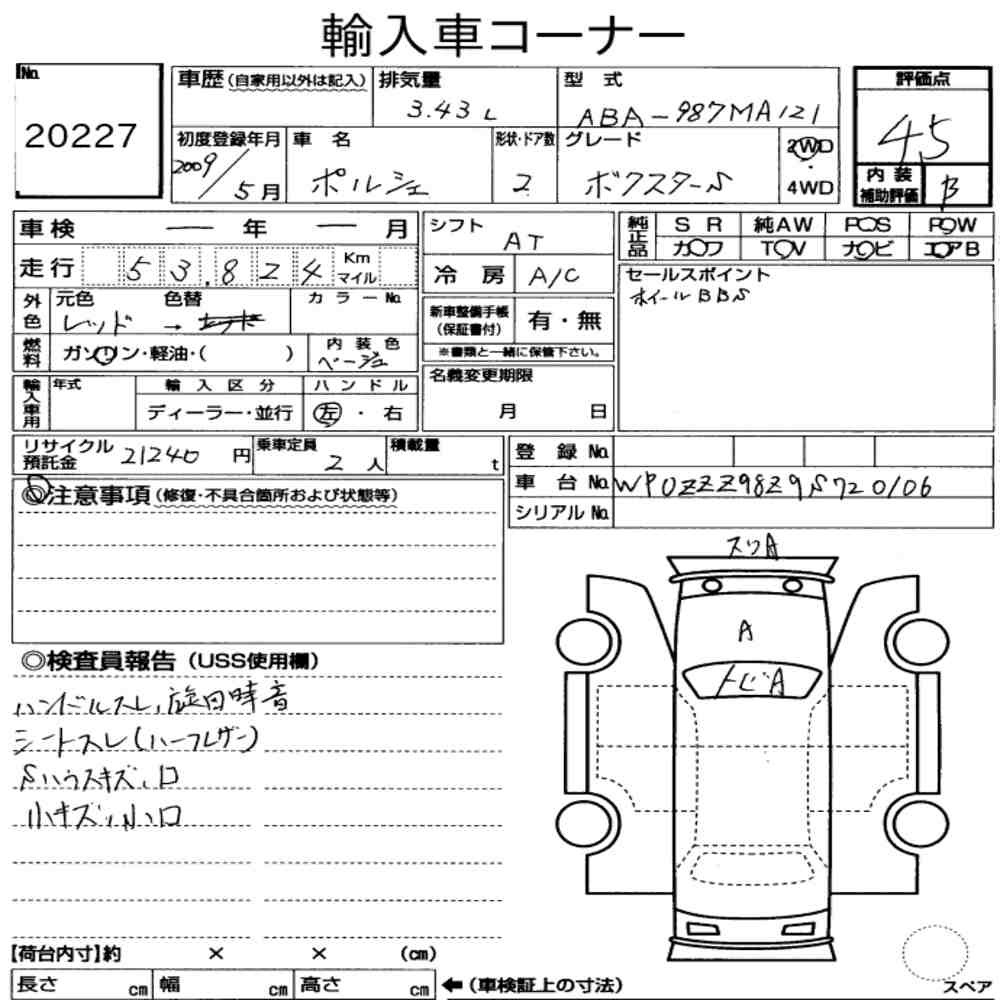 輸入車コーナー
No.
20227
車歴(自家用以外は記入)
排気量
3.43 L
型式
ABA-987MA121
評価点
4.5
初度登録年月
2009/5月
車名
ポルシェ
形状・ドア数
2
グレード
ボクスターS
2WD
・
4WD
内装
補助評価
B
車検 — 年 — 月
シフト
AT
純正品
SR
純AW
PS
PW
カワ
TV
ナビ
エアB
走行
53,824
Km
マイル
冷房
A/C
セールスポイント
ホイールBBS
外色
元色
色替
カラーNo.
レッド →
新車整備手帳
(保証書付)
有・無
※書類と一緒に保管下さい。
燃料
ガソリン・軽油・( )
内装色
ベージュ
名義変更期限
月 日
輸入車用
年式
輸入区分
ハンドル
ディーラー・並行
左・右
リサイクル
預託金
21240 円
乗車定員
2人
積載量
t
登録No.
車台No.
WP0ZZZ98Z9S720106
シリアルNo.
◎注意事項(修復・不具合箇所および状態等)
スリA
A
トビA
◎検査員報告(USS使用欄)
ハンドルスレ、旋回時音
シートスレ(ハーフレザー)
Sハウスキズ、ロ
小キズ、小ロ
【荷台内寸】約 × × (cm)
長さ cm
幅 cm
高さ cm
←(車検証上の寸法)
スペア